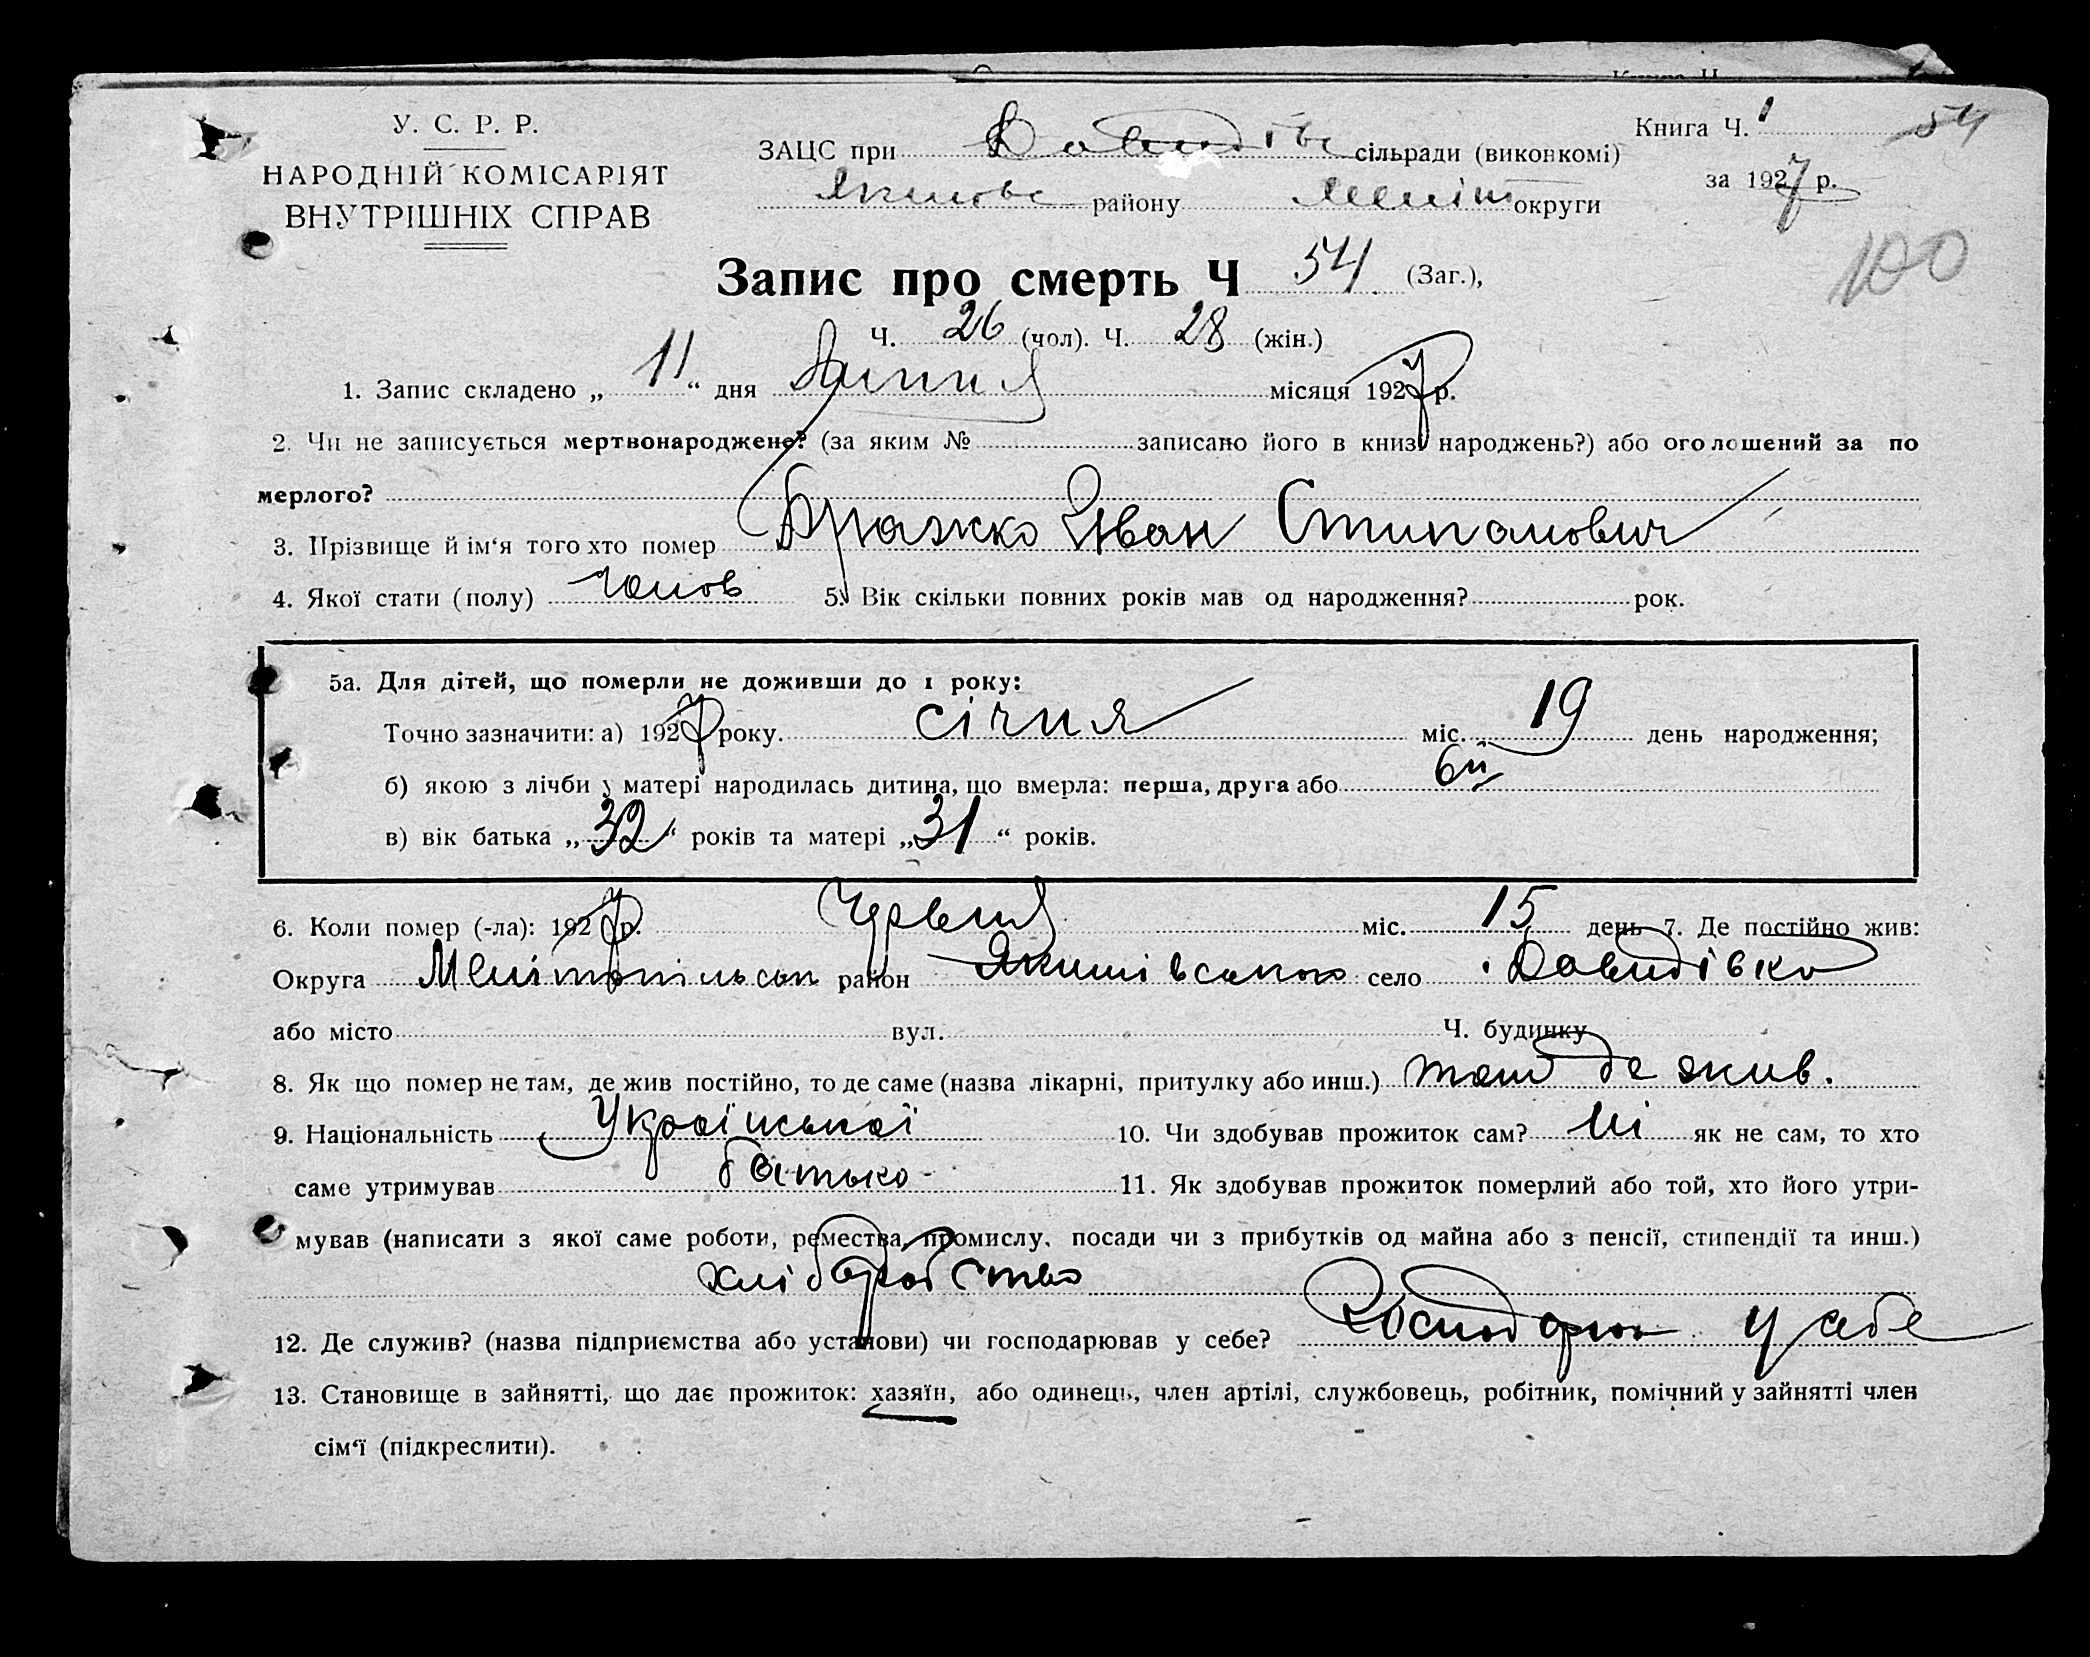 Книга Ч. 1 54
У. С. Р. Р.
НАРОДНІЙ КОМІСАРІЯТ
ВНУТРІШНІХ СПРАВ
ЗАЦС при Давидівс сільради (виконкомі)
Якимовс району Меліт округи
за 1927 р.
100
Запис про смерть Ч 54 (Заг.),
Ч. 26 (чол). Ч. 28 (жін.)
1. Запис складено „ 11 “ дня Липня місяця 1927 р.
2. Чи не записується мертвонароджене? (за яким № записано його в книзі народжень?) або оголошений за по
мерлого?
3. Прізвище й ім‘я того хто помер Бражко Іван Стипанович
4. Якої стати (полу) чолов 5. Вік скільки повних років мав од народження? рок.
5а. Для дітей, що померли не доживши до 1 року:
Точно зазначити: а) 1927 року. січня міс. 19 день народження;
б) якою з лічби у матері народилась дитина, що вмерла: перша, друга або 6й
в) вік батька „ 32 “ років та матері „ 31 “ років.
6. Коли помер (-ла): 1927 р. Червня міс. 15 день 7. Де постійно жив:
Округа Мелітопільськ район Якимівською село Давидівка
або місто вул. Ч. будинку
8. Як що помер не там, де жив постійно, то де саме (назва лікарні, притулку або инш.) там де жив.
9. Національність Української 10. Чи здобував прожиток сам? ні як не сам, то хто
саме утримував батько 11. Як здобував прожиток померлий або той, хто його утри-
мував (написати з якої саме роботи, ремества, промислу, посади чи з прибутків од майна або з пенсії, стипендії та инш.)
хліборобство
12. Де служив? (назва підприємства або установи) чи господарював у себе? у себе
13. Становище в зайнятті, що дає прожиток: хазяїн, або одинець, член артілі, службовець, робітник, помічний у зайнятті член
сім‘ї (підкреслити).